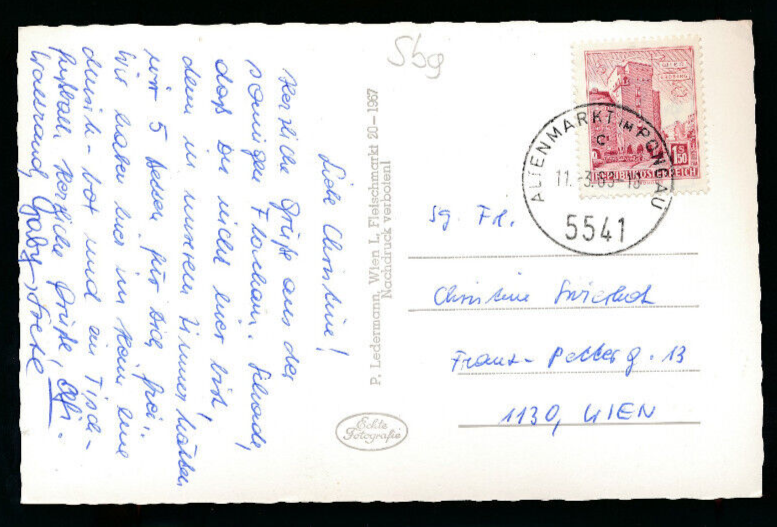 Sbg
Liebe Christine!
Herzliche Grüße aus der
sonnigen Flachau. Schade,
daß Du nicht hier bist,
denn in unserem Zimmer hätten
wir 5 Betten für Dich frei!
Wir haben hier im Heim eine
und ein Tisch-
fußball. Herzliche Grüße,
Waltraud, Gaby,
P. Ledermann, Wien I., Fleischmarkt 20 – 1967
Nachdruck verboten!
Echte
Fotografie
1 S 50
REPUBLIK ÖSTERREICH
ALTENMARKT IM PONGAU
c
11.-3.69-18
5541
Sg. Frl.
Christine
Franz-
g. 13
1130, WIEN